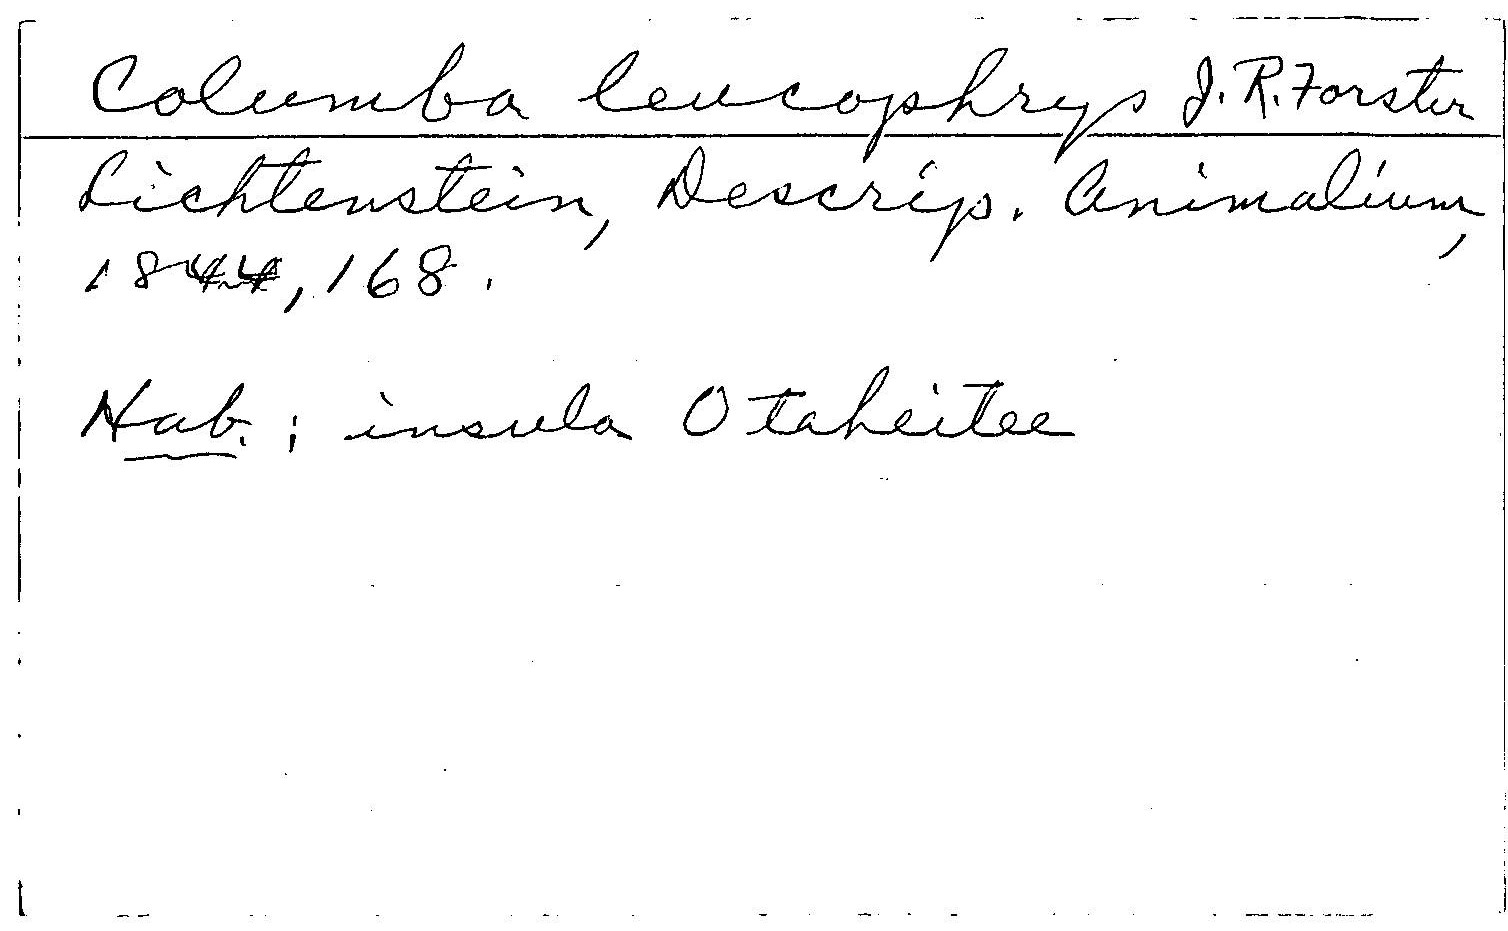 Columba leucophrys J. R. Forster
Lichtenstein, Descrip. Animalium,
1844, 168.
Hab.: insula Otaheitee